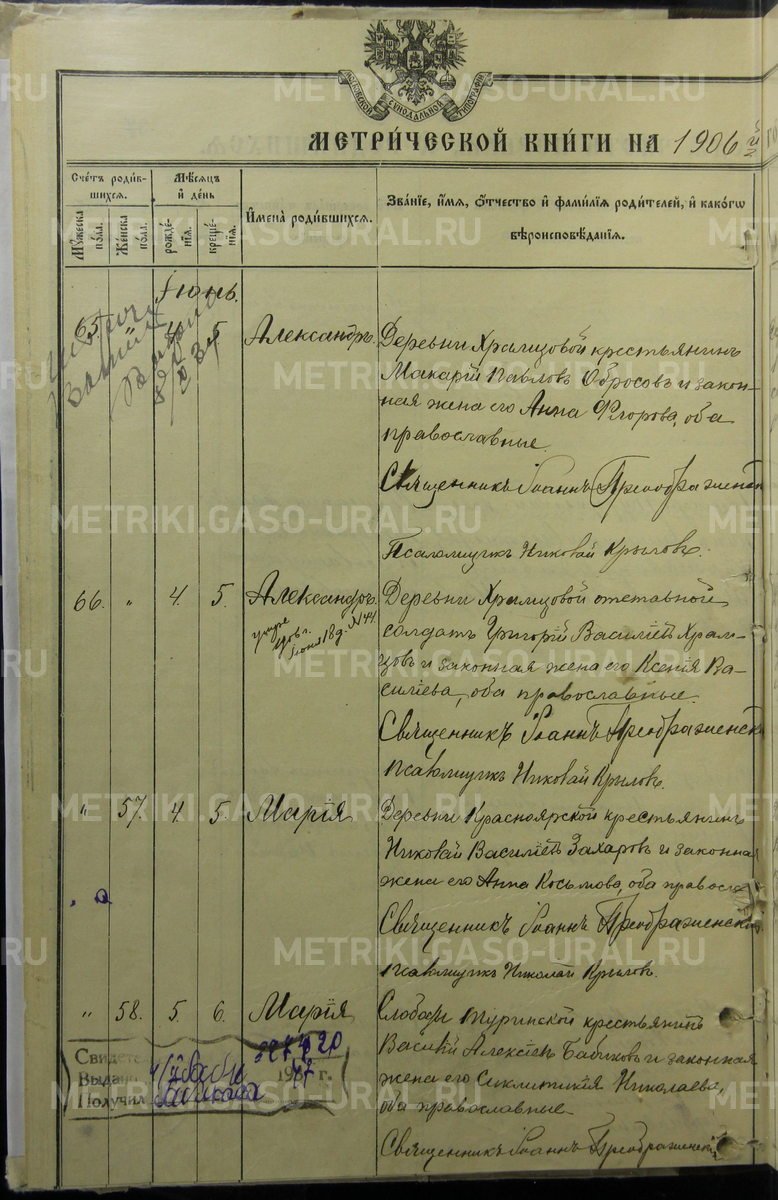 МОСКОВСКОЙ СѴНОДАЛЬНОЙ ТИПОГРАФІИ
МЕТРИ́ЧЕСКОЙ КНИ́ГИ НА 1906 й
Сче́тъ роди́в-
шихсѧ.
Мужеска по́ла.
Же́нска по́ла.
Мѣ́сѧцъ
и҆ де́нь
рожде́-
нїѧ.
креще́-
нїѧ.
И҆мена̀ роди́вшихсѧ.
Зва́нїе, и҆́мѧ, ѻ҆́тчество и҆ фами́лїѧ роди́телей, и҆ како́гѡ
вѣроисповѣ́данїѧ.
Іюнь.
65. " 4 5 Александръ.
Деревни Храмцовой крестьянинъ
Макарій Павловъ Обросовъ и закон-
ная жена его Анна Егорова, оба
православные.
Священникъ Іоаннъ Преображенскій
Псаломщикъ Николай Крыловъ.
66. " 4. 5. Александръ.
умре
Іюня 18 д. №144.
Деревни Храмцовой отставной
солдатъ Григорій Василіевъ Храм-
цовъ и законная жена его Ксенія Ва-
силіева, оба православные.
Священникъ Іоаннъ Преображенскій
Псаломщикъ Николай Крыловъ.
" 57. 4. 5. Марія
Деревни Красноярской крестьянинъ
Николай Василіевъ Захаровъ и законная
жена его Анна Косьмова, оба правосл.
Священникъ Іоаннъ Преображенскій
Псаломщикъ Николай Крыловъ.
" 58. 5. 6. Марія
Слободы Туринской крестьянинъ
Василій Алексіевъ Бабиковъ и законная
жена его Сиклитикія Николаева,
оба православные
Священникъ Іоаннъ Преображенскій
Свидет
Выдано 1947 г.
Получил
METRIKI.GASO-URAL.RU